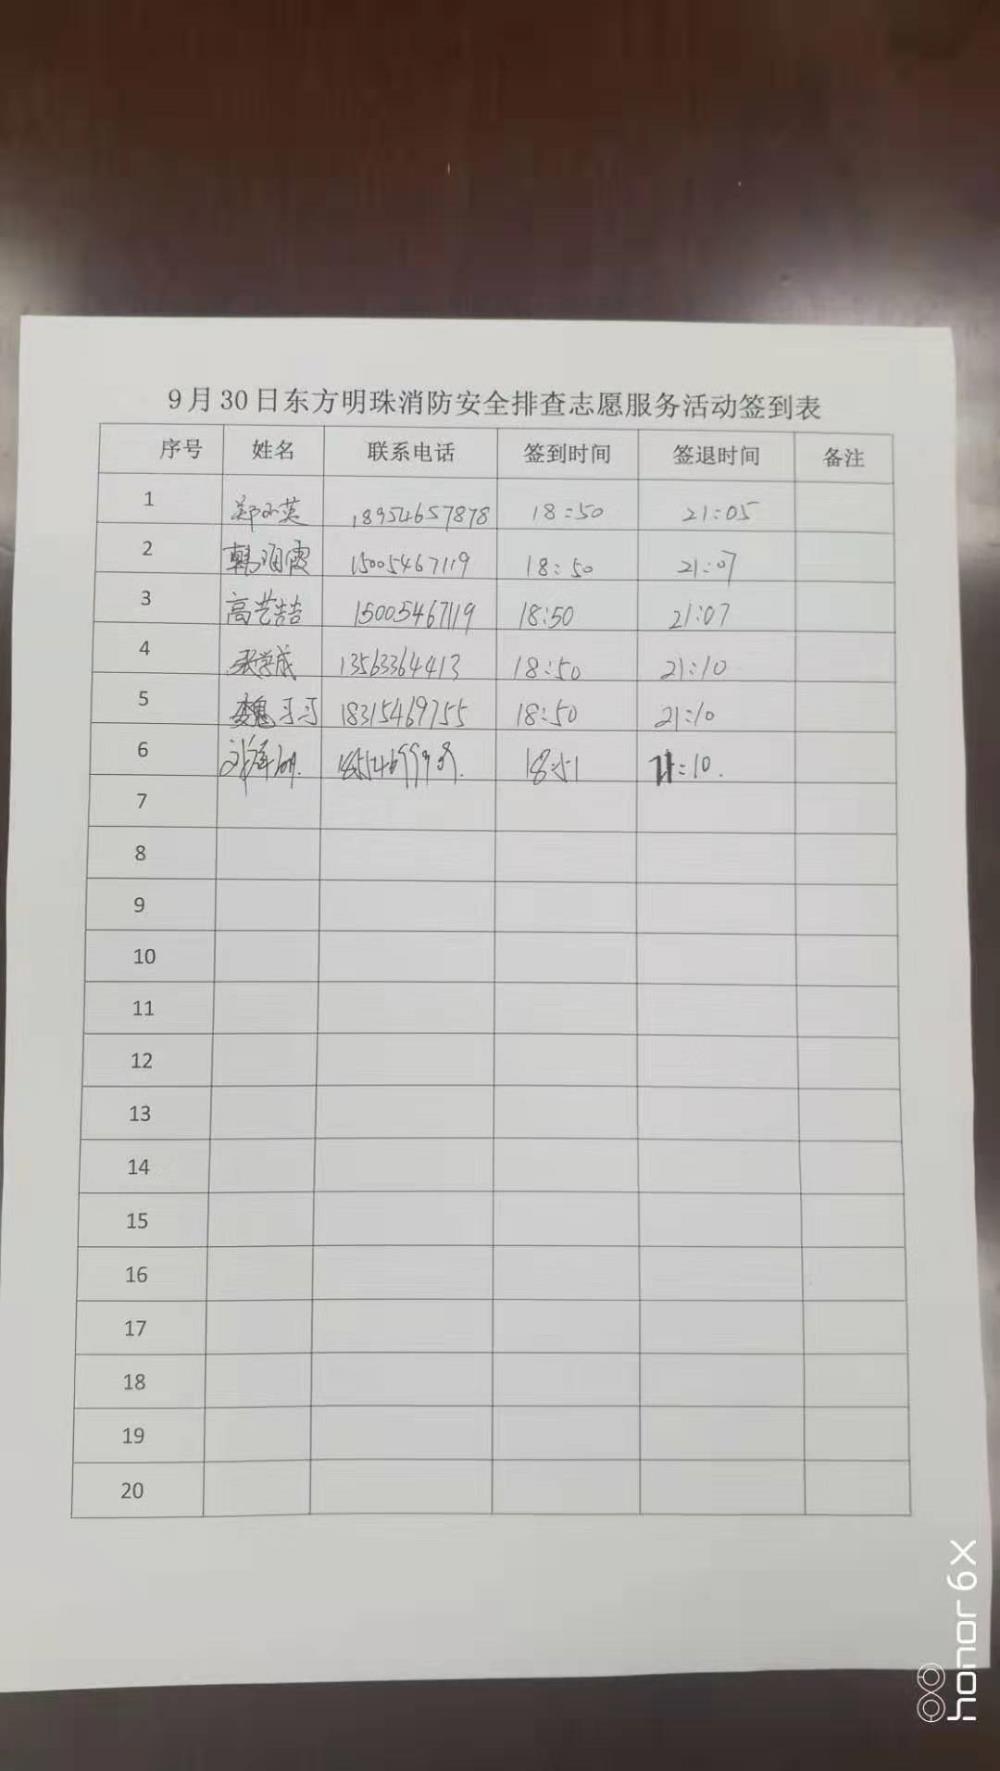 9月30日东方明珠消防安全排查志愿服务活动签到表
序号 姓名 联系电话 签到时间 签退时间 备注
1 郑小英 18954657878 18:50 21:05
2 韩海霞 15005467119 18:50 21:07
3 高艺喆 15005467119 18:50 21:07
4 张学成 13563364413 18:50 21:10
5 魏习习 18315469755 18:50 21:10
6 18:51 21:10.
7
8
9
10
11
12
13
14
15
16
17
18
19
20
honor 6X